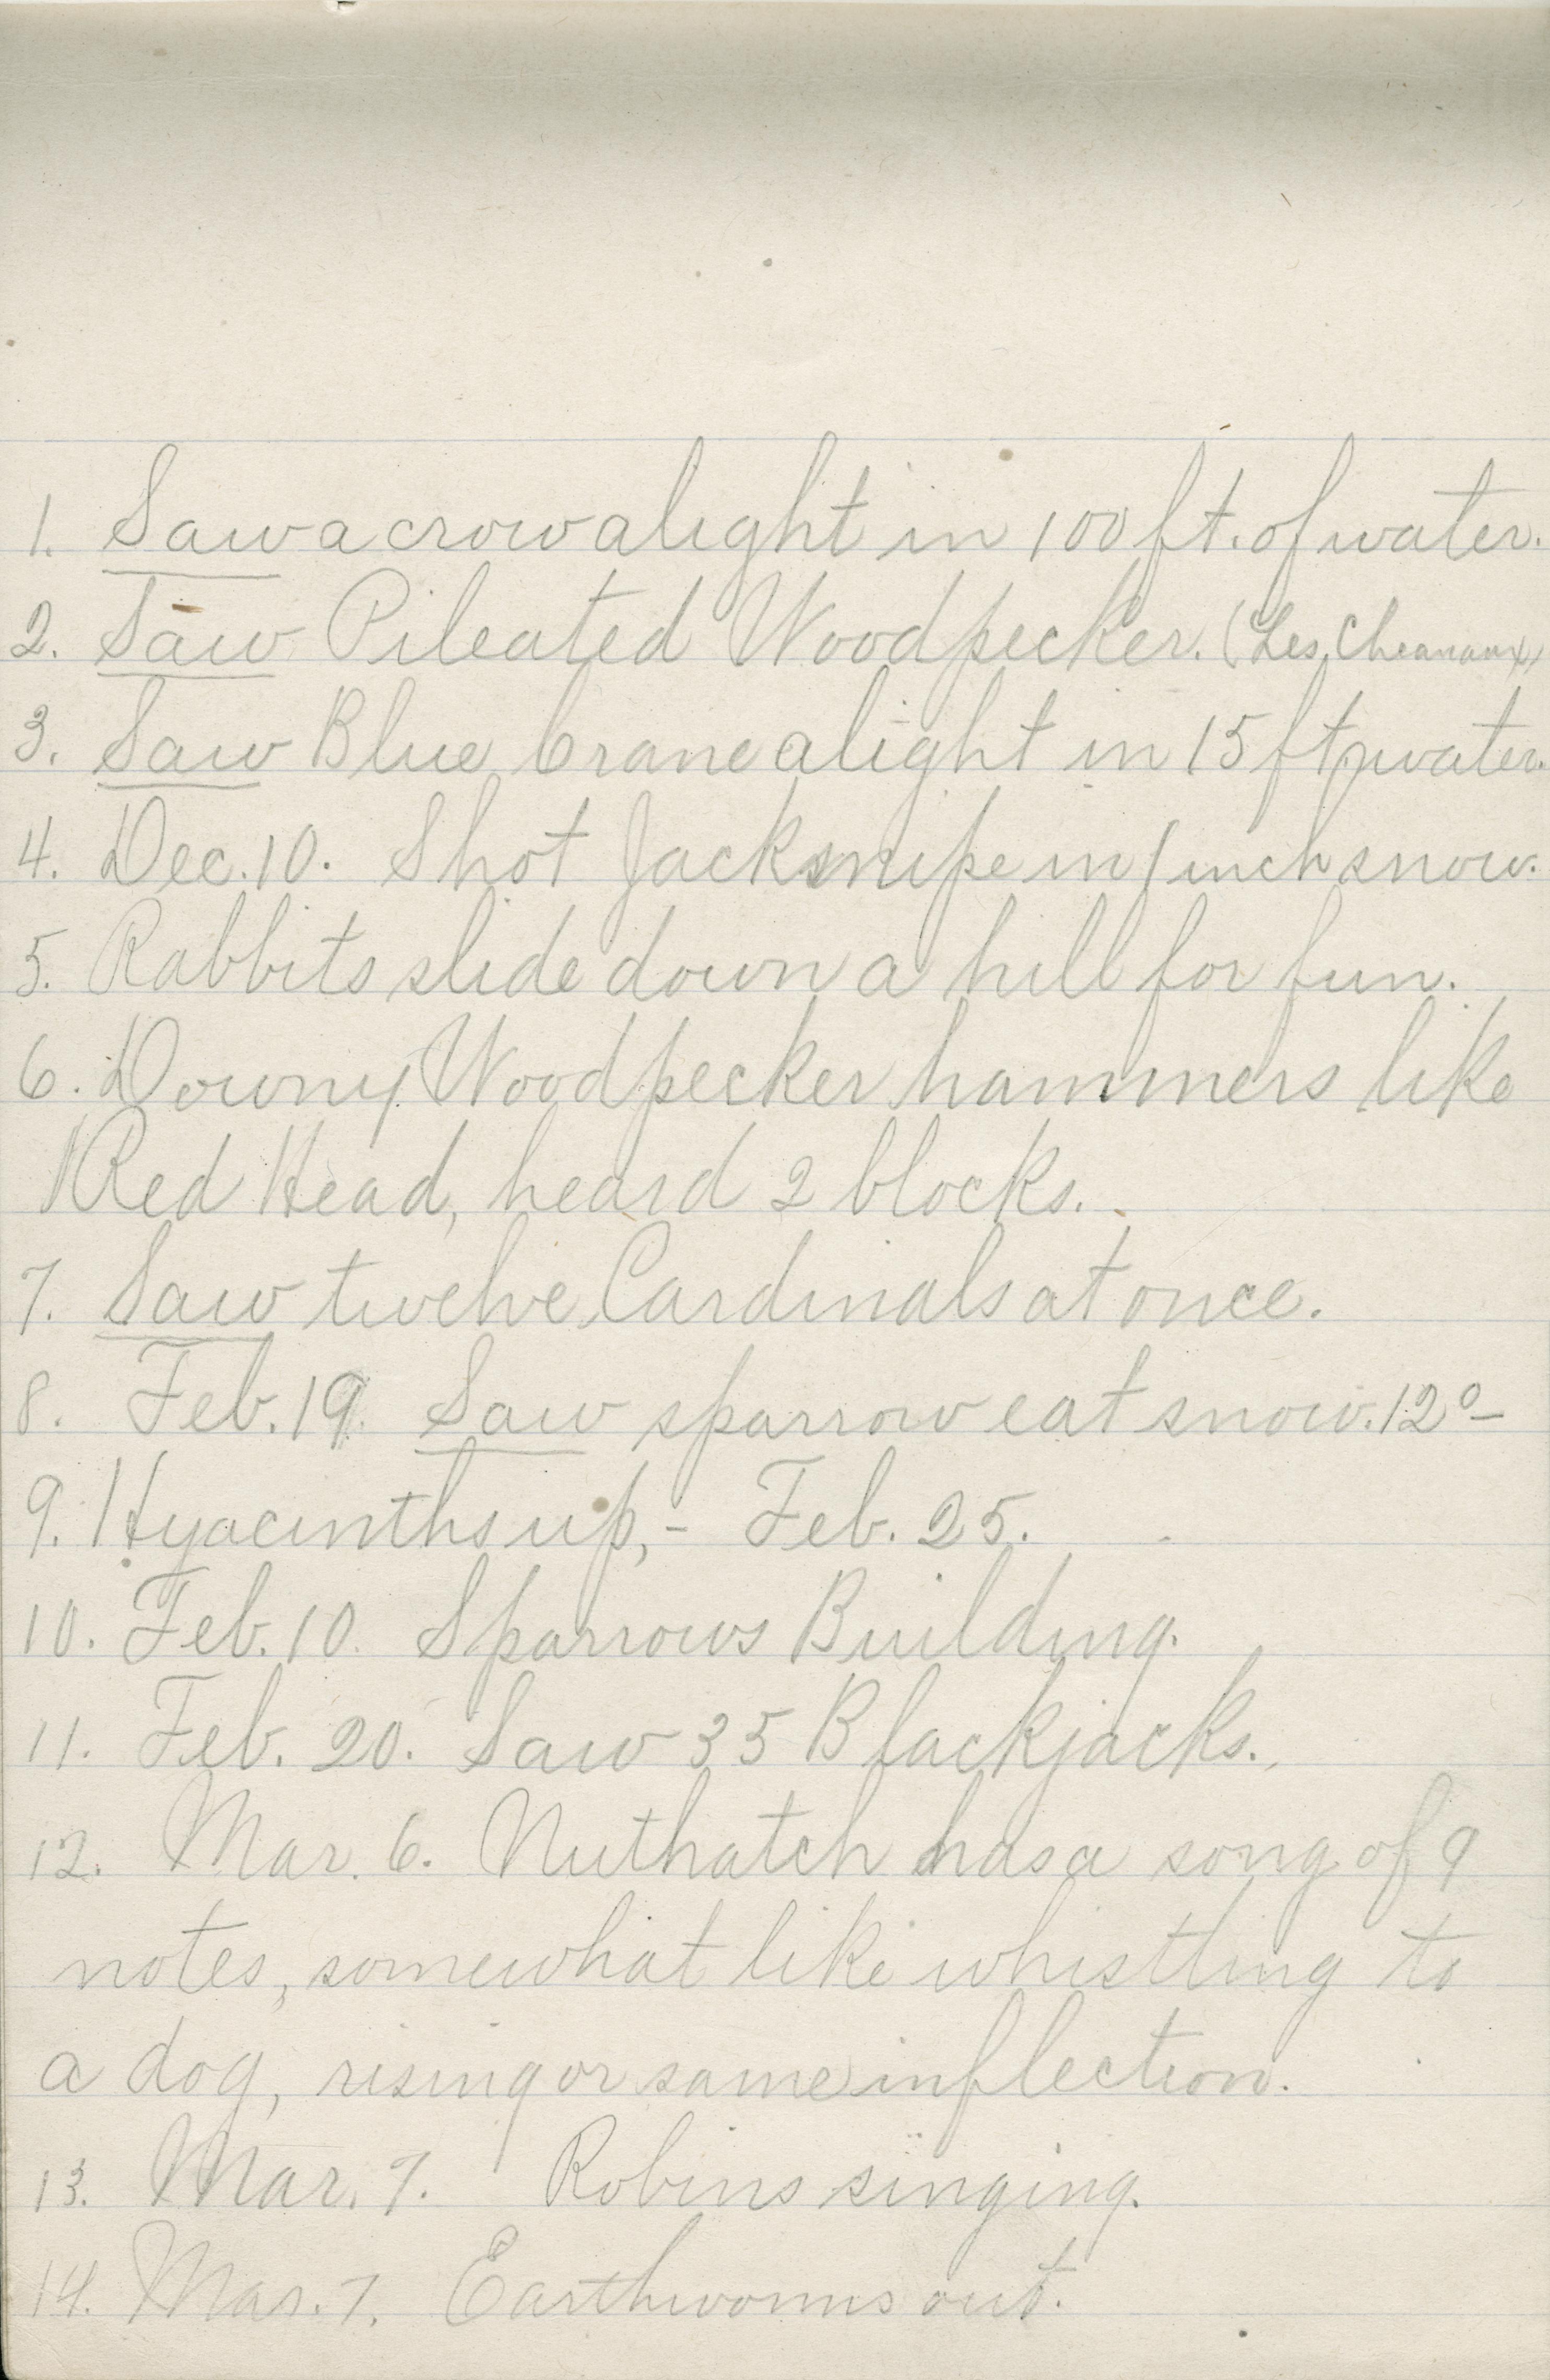 1. Saw a crow alight in 100 ft. of water.
2. Saw Pileated Woodpecker. (Les Cheanaux)
3. Saw Blue Crane alight in 15 ft water.
4. Dec. 10. Shot Jacksnipe in 1 inch snow.
5. Rabbits slide down a hill for fun.
6. Downy Woodpecker hammers like
Red Head, heard 2 blocks.
7. Saw twelve Cardinals at once.
8. Feb. 19. Saw sparrow eat snow. 12°-
9. Hyacinths up, - Feb. 25.
10. Feb. 10. Sparrows Building.
11. Feb. 20. Saw 35 Blackjacks.
12. Mar. 6. Nuthatch has a song of 9
notes, somewhat like whistling to
a dog, rising or same inflection.
13. Mar. 7. Robins singing.
14. Mar. 7. Earthworms out.